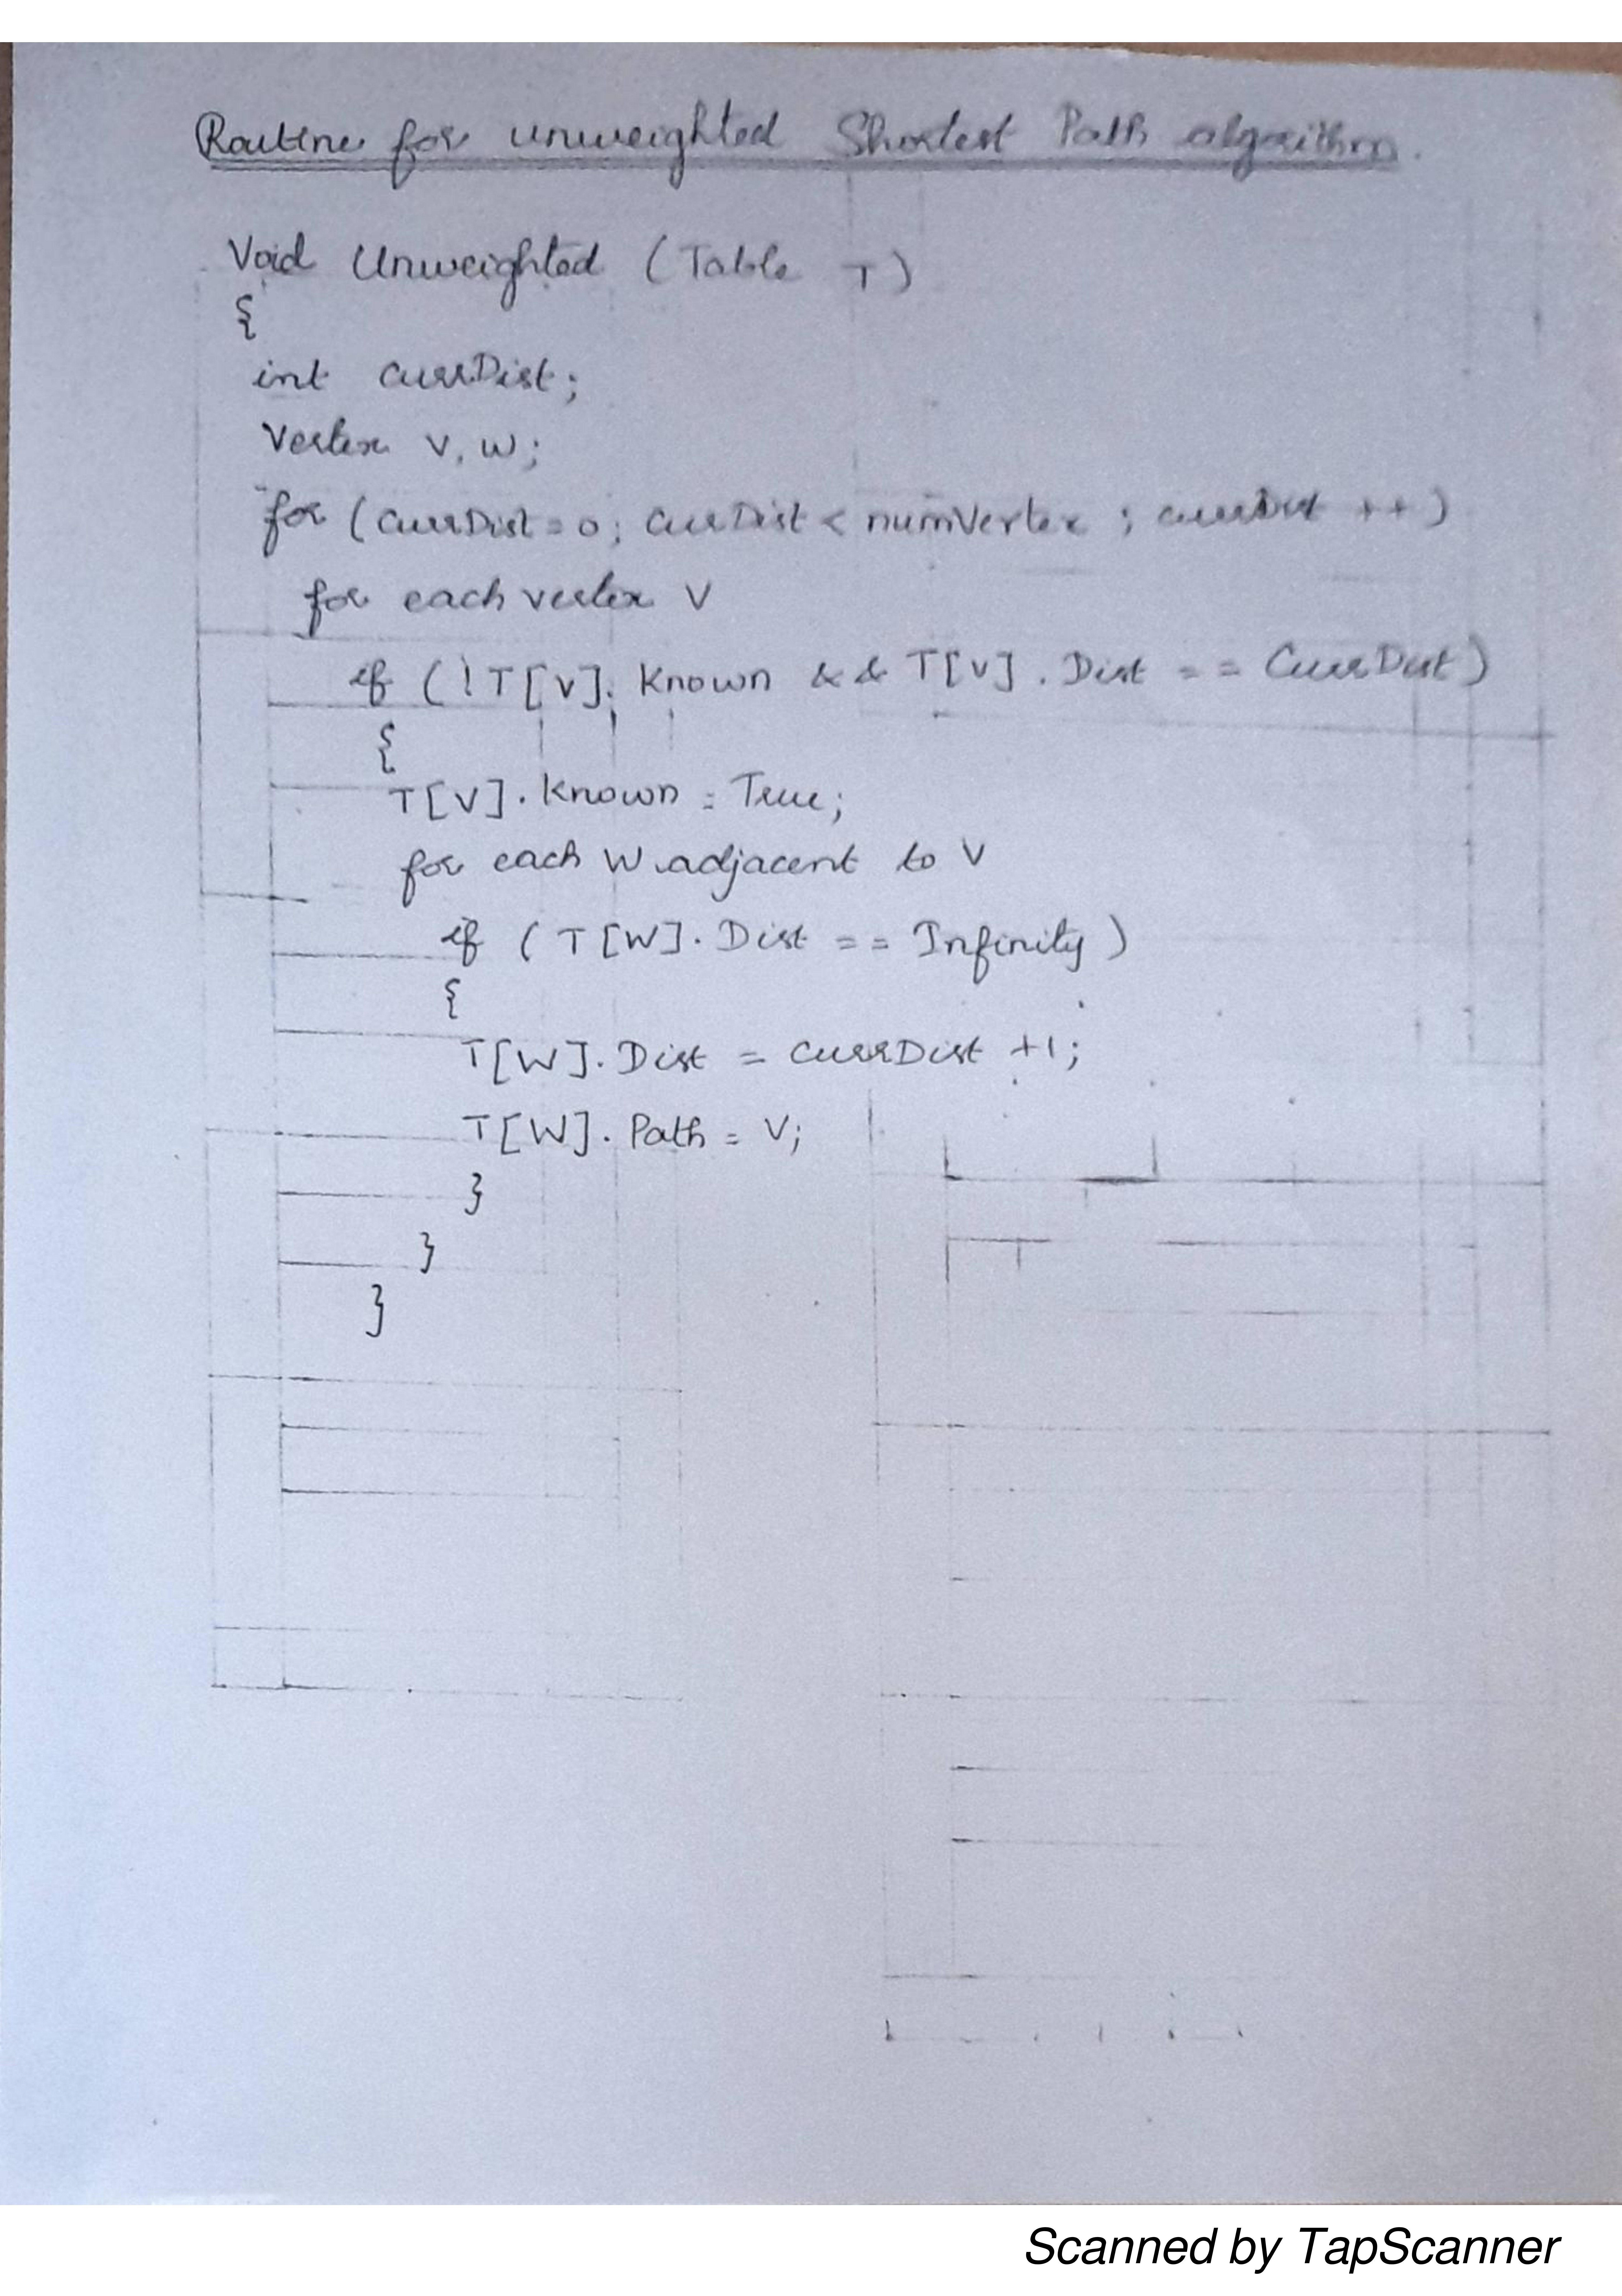 Routine for unweighted Shortest Path algorithm.
Void Unweighted (Table T)
{
int CurrDist;
Vertex V, W;
for (CurrDist = 0; CurrDist < numVertex ; currDist ++)
for each vertex V
if (! T[V]. Known && T[V]. Dist == CurrDist)
{
T[V]. Known = True;
for each W adjacent to V
if ( T[W]. Dist == Infinity )
{
T[W]. Dist = CurrDist +1;
T[W]. Path = V;
}
}
}
Scanned by TapScanner